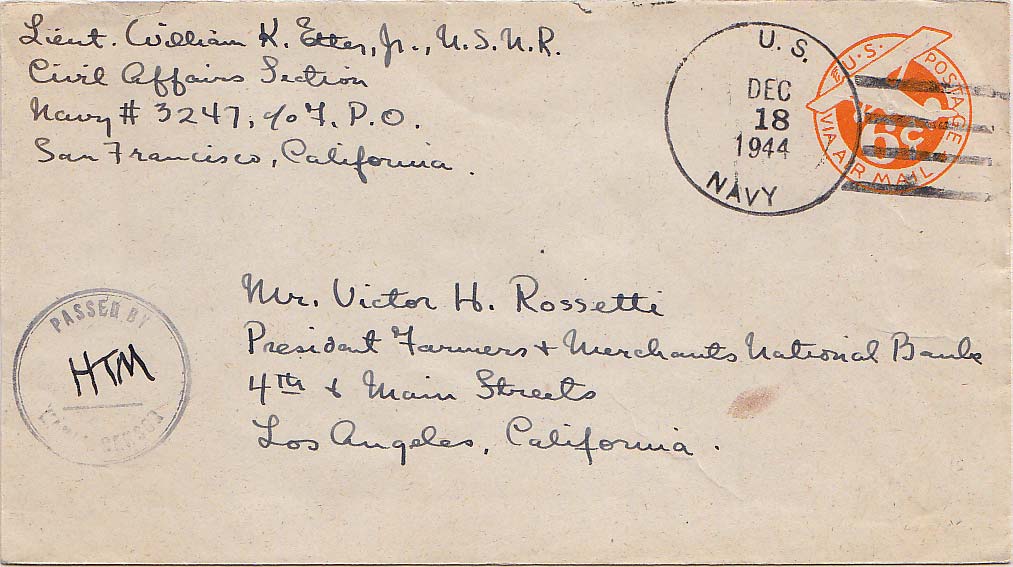 Lieut. William K. Etter, Jr., U.S.N.R.
Civil Affairs Section
Navy # 3247, c/o F.P.O.
San Francisco, California.
U.S.
DEC
18
1944
NAVY
U.S. POSTAGE
6¢
VIA AIR MAIL
PASSED BY
HTM
NAVAL CENSOR
Mr. Victor H. Rossetti
President Farmers & Merchants National Bank
4th & Main Streets
Los Angeles, California.